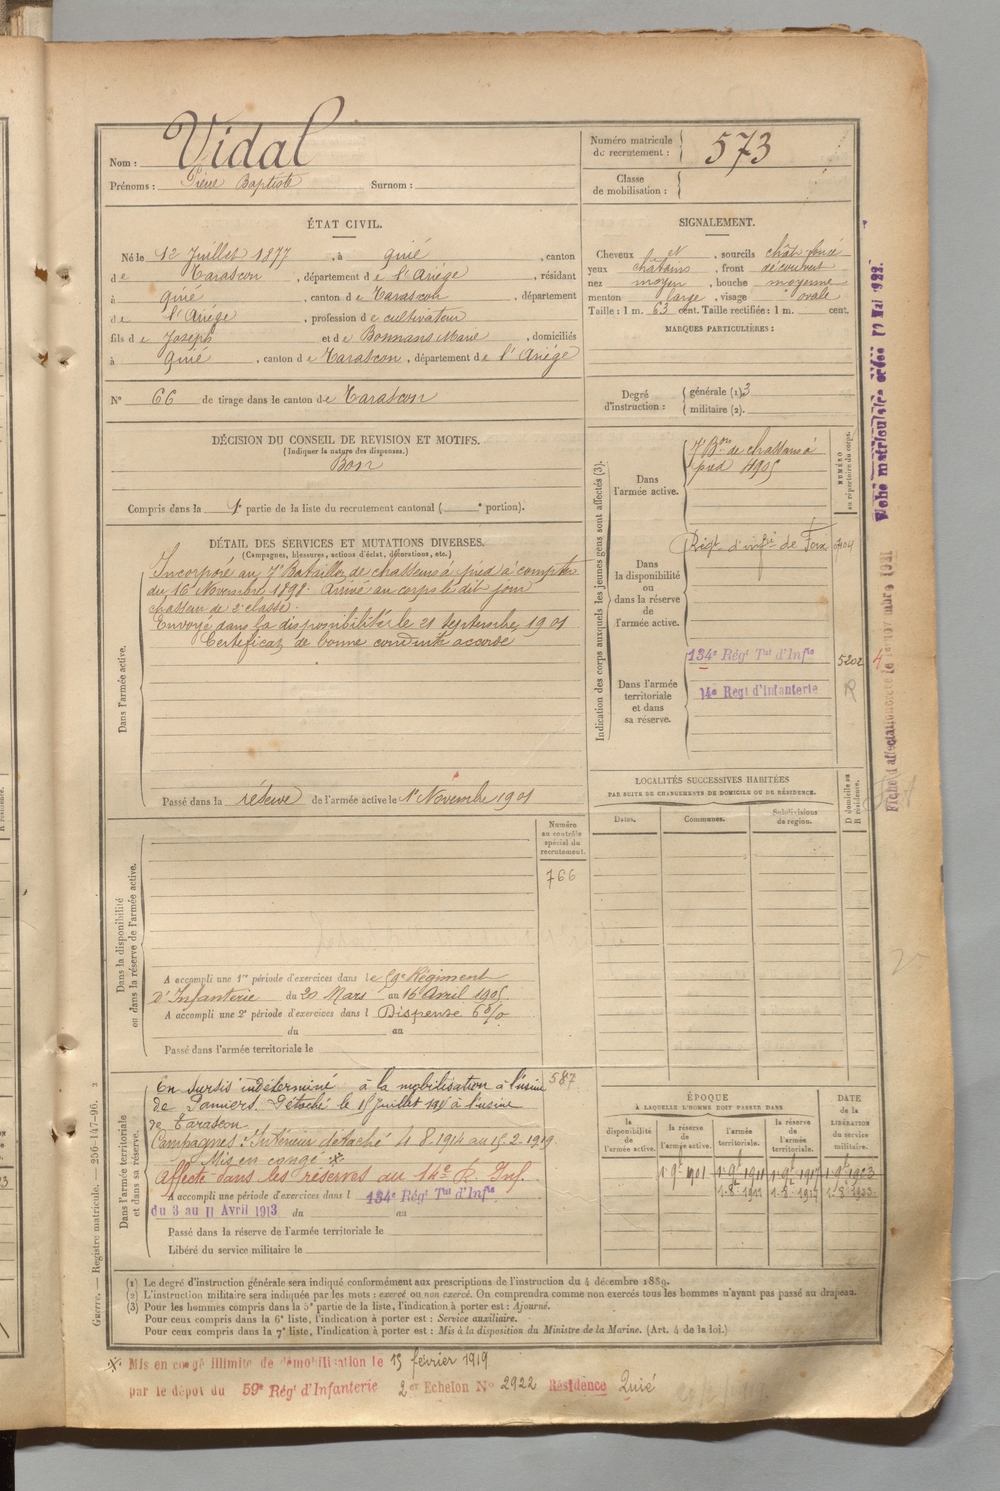 Nom : Vidal
Prénoms : Pierre Baptiste Surnom :
Numéro matricule de recrutement : 573
Classe de mobilisation :
ÉTAT CIVIL.
Né le 12 Juillet 1877, à Quié, canton
de Tarascon, département de l'Ariège, résidant
à Quié, canton de Tarascon, département
de l'Ariège, profession de cultivateur
fils de Joseph et de Bonnans Marie, domiciliés
à Quié, canton de Tarascon, département de l'Ariège
N° 66 de tirage dans le canton de Tarascon
SIGNALEMENT.
Cheveux et, sourcils chât foncé
yeux chatains, front découvert
nez moyen, bouche moyenne
menton large, visage ovale
Taille : 1 m. 63 cent. Taille rectifiée : 1 m. cent.
MARQUES PARTICULIÈRES :
Degré d'instruction : générale (1). 3
militaire (2).
DÉCISION DU CONSEIL DE REVISION ET MOTIFS.
(Indiquer la nature des dispenses.)
Bon
Compris dans la 1e partie de la liste du recrutement cantonal ( e portion).
DÉTAIL DES SERVICES ET MUTATIONS DIVERSES.
(Campagnes, blessures, actions d'éclat, décorations, etc.)
Dans l'armée active.
Incorporé au 7e Bataillon de chasseurs à pied à compter
du 16 Novembre 1898. Arrivé au corps le dit jour
chasseur de 2e classe.
Envoyé dans la disponibilité le 21 Septembre 1901
Certificat de bonne conduite accordé
Passé dans la réserve de l'armée active le 1er Novembre 1901
Indication des corps auxquels les jeunes gens sont affectés (3).
NUMÉRO au répertoire du corps.
Dans l'armée active.
7e Bon de chasseurs à
pied 4905
Dans la disponibilité ou dans la réserve de l'armée active.
Régt d'infie de Foix 0404
Dans l'armée territoriale et dans sa réserve.
134e Régt Tal d'Infie 5202
14e Regt d'Infanterie R
LOCALITÉS SUCCESSIVES HABITÉES
PAR SUITE DE CHANGEMENTS DE DOMICILE OU DE RÉSIDENCE.
Dates. Communes. Subdivisions de région. D domicile ou R résidence.
Dans la disponibilité ou dans la réserve de l'armée active.
Numéro au contrôle spécial du recrutement.
766
A accompli une 1re période d'exercices dans le 59e Régiment
d'Infanterie du 20 Mars au 16 Avril 1905
A accompli une 2e période d'exercices dans l Dispensé 6%
du au
Passé dans l'armée territoriale le
Dans l'armée territoriale et dans sa réserve.
En sursis indéterminé à la mobilisation à l'usine 587
de Pamiers. Détaché le 15 Juillet 1915 à l'usine
de Tarascon
Campagnes : Intérieur détaché 4.8.1914 au 15.2.1919.
Mis en congé
Affecté dans les réserves au 14e R. Inf.
A accompli une période d'exercices dans l 134e Régt Tal d'Infie
du 3 au 11 Avril 1913 du au
Passé dans la réserve de l'armée territoriale le
Libéré du service militaire le
ÉPOQUE
À LAQUELLE L'HOMME DOIT PASSER DANS
la disponibilité de l'armée active. la réserve de l'armée active. l'armée territoriale. la réserve de l'armée territoriale. DATE DE LA LIBÉRATION du service militaire.
(1) Le degré d'instruction générale sera indiqué conformément aux prescriptions de l'instruction du 4 décembre 1889.
(2) L'instruction militaire sera indiquée par les mots : exercé ou non exercé. On comprendra comme non exercés tous les hommes n'ayant pas passé au drapeau.
(3) Pour les hommes compris dans la 5e partie de la liste, l'indication à porter est : Ajourné.
Pour ceux compris dans la 6e liste, l'indication à porter est : Service auxiliaire.
Pour ceux compris dans la 7e liste, l'indication à porter est : Mis à la disposition du Ministre de la Marine. (Art. 4 de la loi.)
Mis en congé illimité de démobilisation le 15 février 1919
par le dépôt du 59e Régt d'Infanterie 2er Echelon N° 2922 Résidence Quié
Guerre. — Registre matricule. — 256-147-96.
Fiche matriculaire créée 17 Mai 1922.